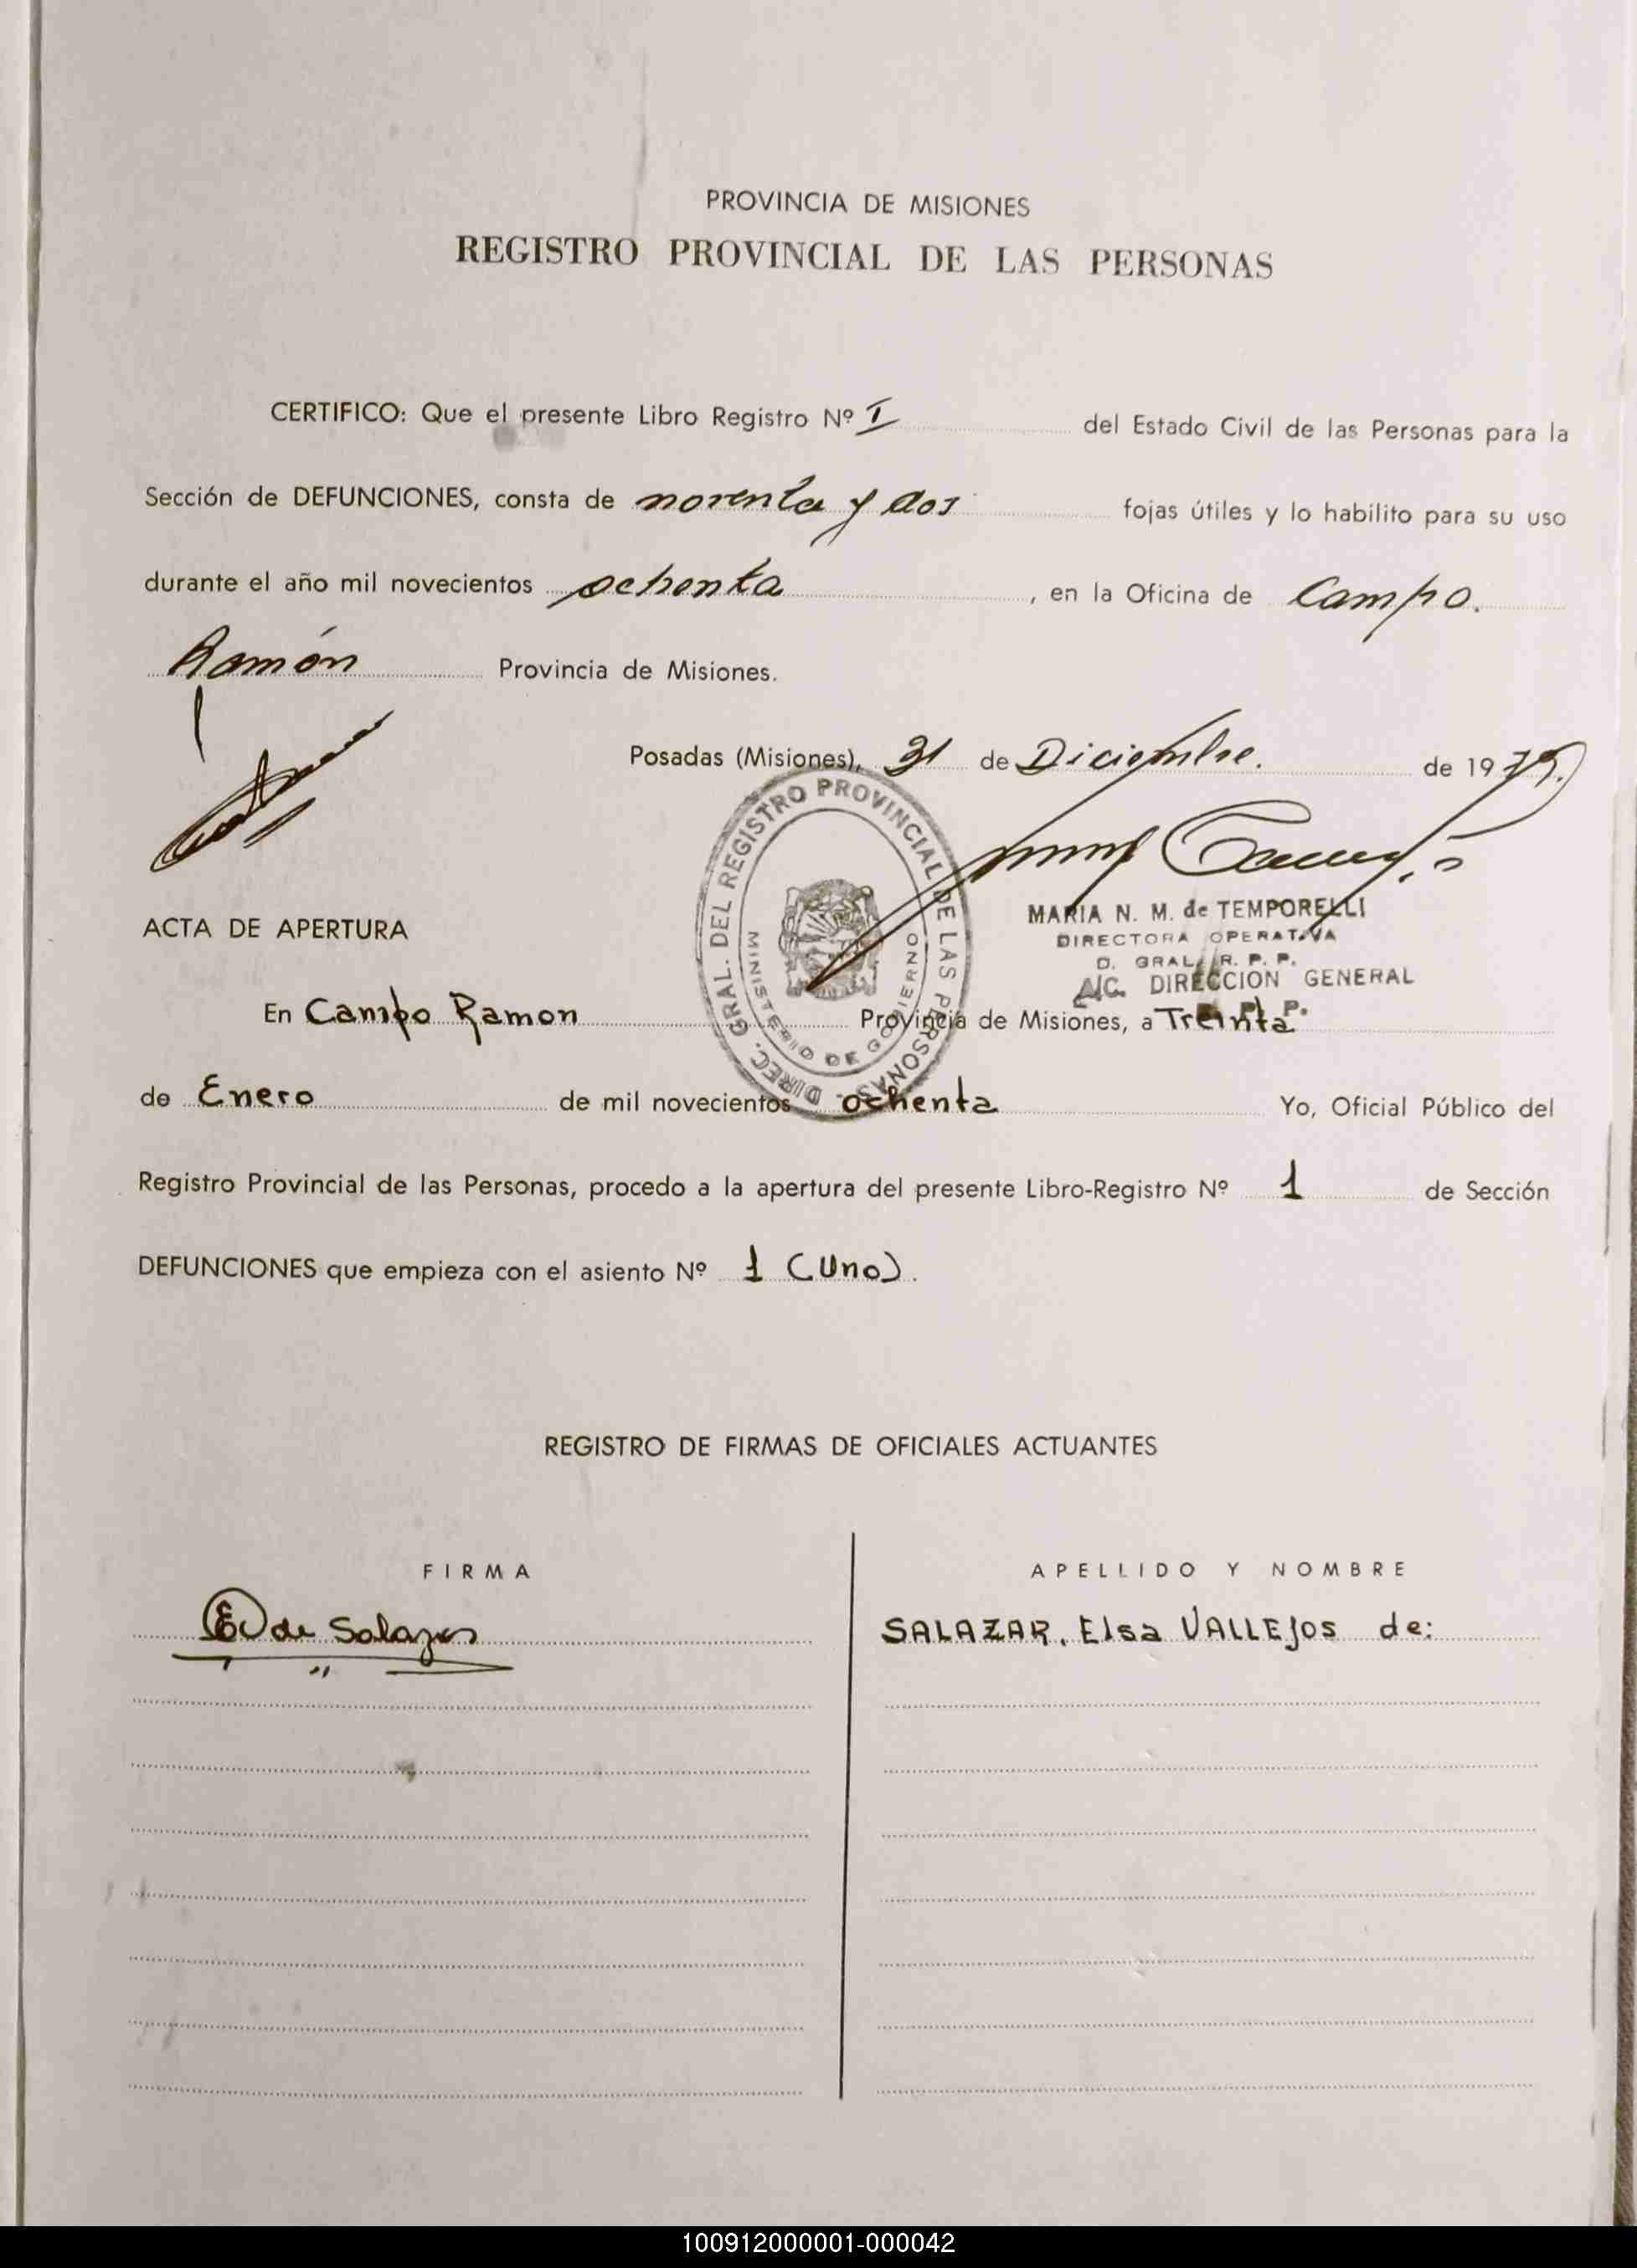 PROVINCIA DE MISIONES
REGISTRO PROVINCIAL DE LAS PERSONAS
CERTIFICO: Que el presente Libro Registro Nº I del Estado Civil de las Personas para la
Sección de DEFUNCIONES, consta de noventa y dos fojas útiles y lo habilito para su uso
durante el año mil novecientos ochenta, en la Oficina de Campo.
Ramón Provincia de Misiones.
Posadas (Misiones), 31 de Diciembre. de 1979.
DIREC. GRAL. DEL REGISTRO PROVINCIAL DE LAS PERSONAS
MINISTERIO DE GOBIERNO
MARIA N. M. de TEMPORELLI
DIRECTORA OPERATIVA
D. GRAL. R. P. P.
A/C. DIRECCION GENERAL
R. P. P.
ACTA DE APERTURA
En Campo Ramon Provincia de Misiones, a Treinta
de Enero de mil novecientos ochenta Yo, Oficial Público del
Registro Provincial de las Personas, procedo a la apertura del presente Libro-Registro Nº 1 de Sección
DEFUNCIONES que empieza con el asiento Nº 1 (Uno).
REGISTRO DE FIRMAS DE OFICIALES ACTUANTES
FIRMA APELLIDO Y NOMBRE
EV de Salazar SALAZAR, Elsa VALLEJOS de:
100912000001-000042